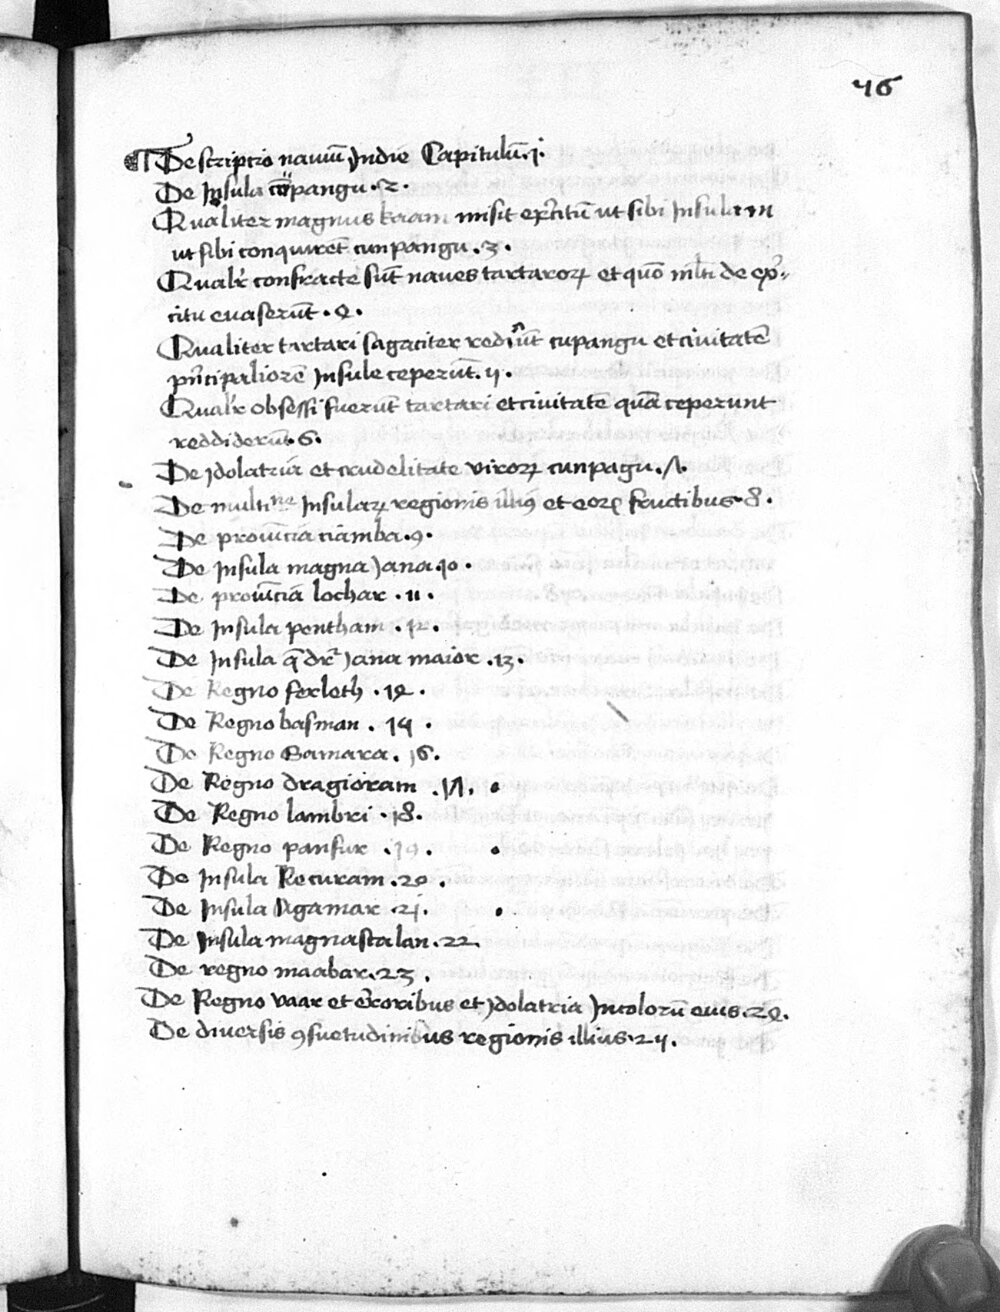 46
¶ Descriptio naviũ Indie Capitulũ .j.
De Insula cũpangu .2.
Qualiter magnus kaam misit exẽcitũ ut sibi Insulam
ut sibi conquiret̃ cunpangu .3.
Qualr̃ confracte sũt naves tartaroꝝ et quõ ml̃ti de exẽr
citu evaserũt .4.
Qualiter tartari sagaciter rediẽrũt cupangu et civitatẽ
prĩcipaliorẽ Insule ceperũt .5.
Qualr̃ obsessi fuerũt tartari et civitatẽ quã ceperunt
reddiderũt .6.
De ydolatria et crudelitate viroꝝ cunpagu .7.
De multine Insulaꝝ regionis illiꝰ et eoꝝ fructibus .8.
De provĩcia ciamba .9.
De Insula magna Jana 10.
De provĩcia lochac .11.
De Insula pentham .12.
De Insula q̃ dr̃ Jana maior .13.
De Regno ferleth .14.
De Regno basman .15.
De Regno Samara .16.
De Regno dragioram .17.
De Regno lambri .18.
De Regno panfur .19.
De Insula Necuram .20.
De Insula Agamar .21.
De Insula magna stalan .22
De regno maabar .23.
De Regno vaar et erroribus et ydolatria Incolorũ eius .24.
De diversis ꝯsuetudinibus regionis illius .25.